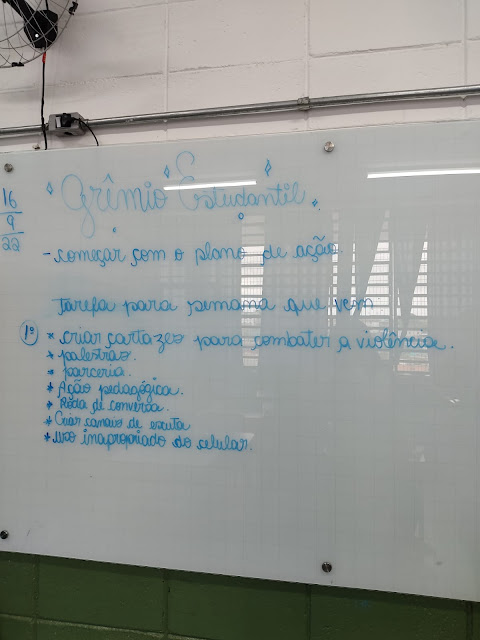 16
9
22
Grêmio Estudantil
- começar com o plano de ação
tarefa para semana que vem
1º * criar cartazes para combater a violência.
* palestras.
* parceria.
* Ação pedagógica.
* Roda de conversa.
* Criar canais de escuta
* uso inapropriado do celular.